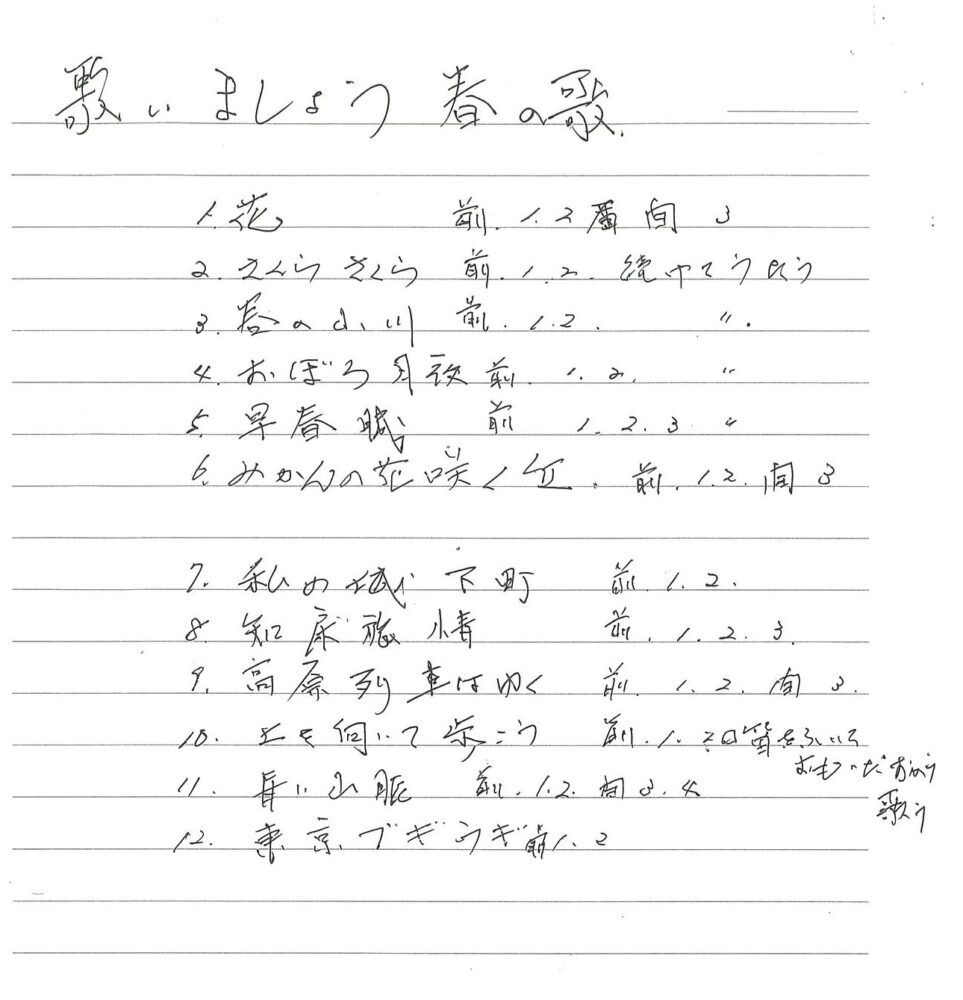 歌いましょう 春の歌.
1. 花 前. 1. 2番 間 3
2. さくらさくら 前. 1. 2. 続けてうたう
3. 春の小川 前. 1. 2. 〃.
4. おぼろ月夜 前. 1. 2. 〃
5. 早春賦 前 1. 2. 3 〃
6. みかんの花咲く丘. 前. 1. 2. 間 3
7. 私の城下町 前. 1. 2.
8. 知床旅情 前. 1. 2. 3.
9. 高原列車はゆく 前. 1. 2. 間 3.
10. 上を向いて歩こう 前. 1. 2 口笛をふいて
歌う
11. 青い山脈 前. 1. 2. 間 3. 4
12. 東京ブギウギ 前 1. 2